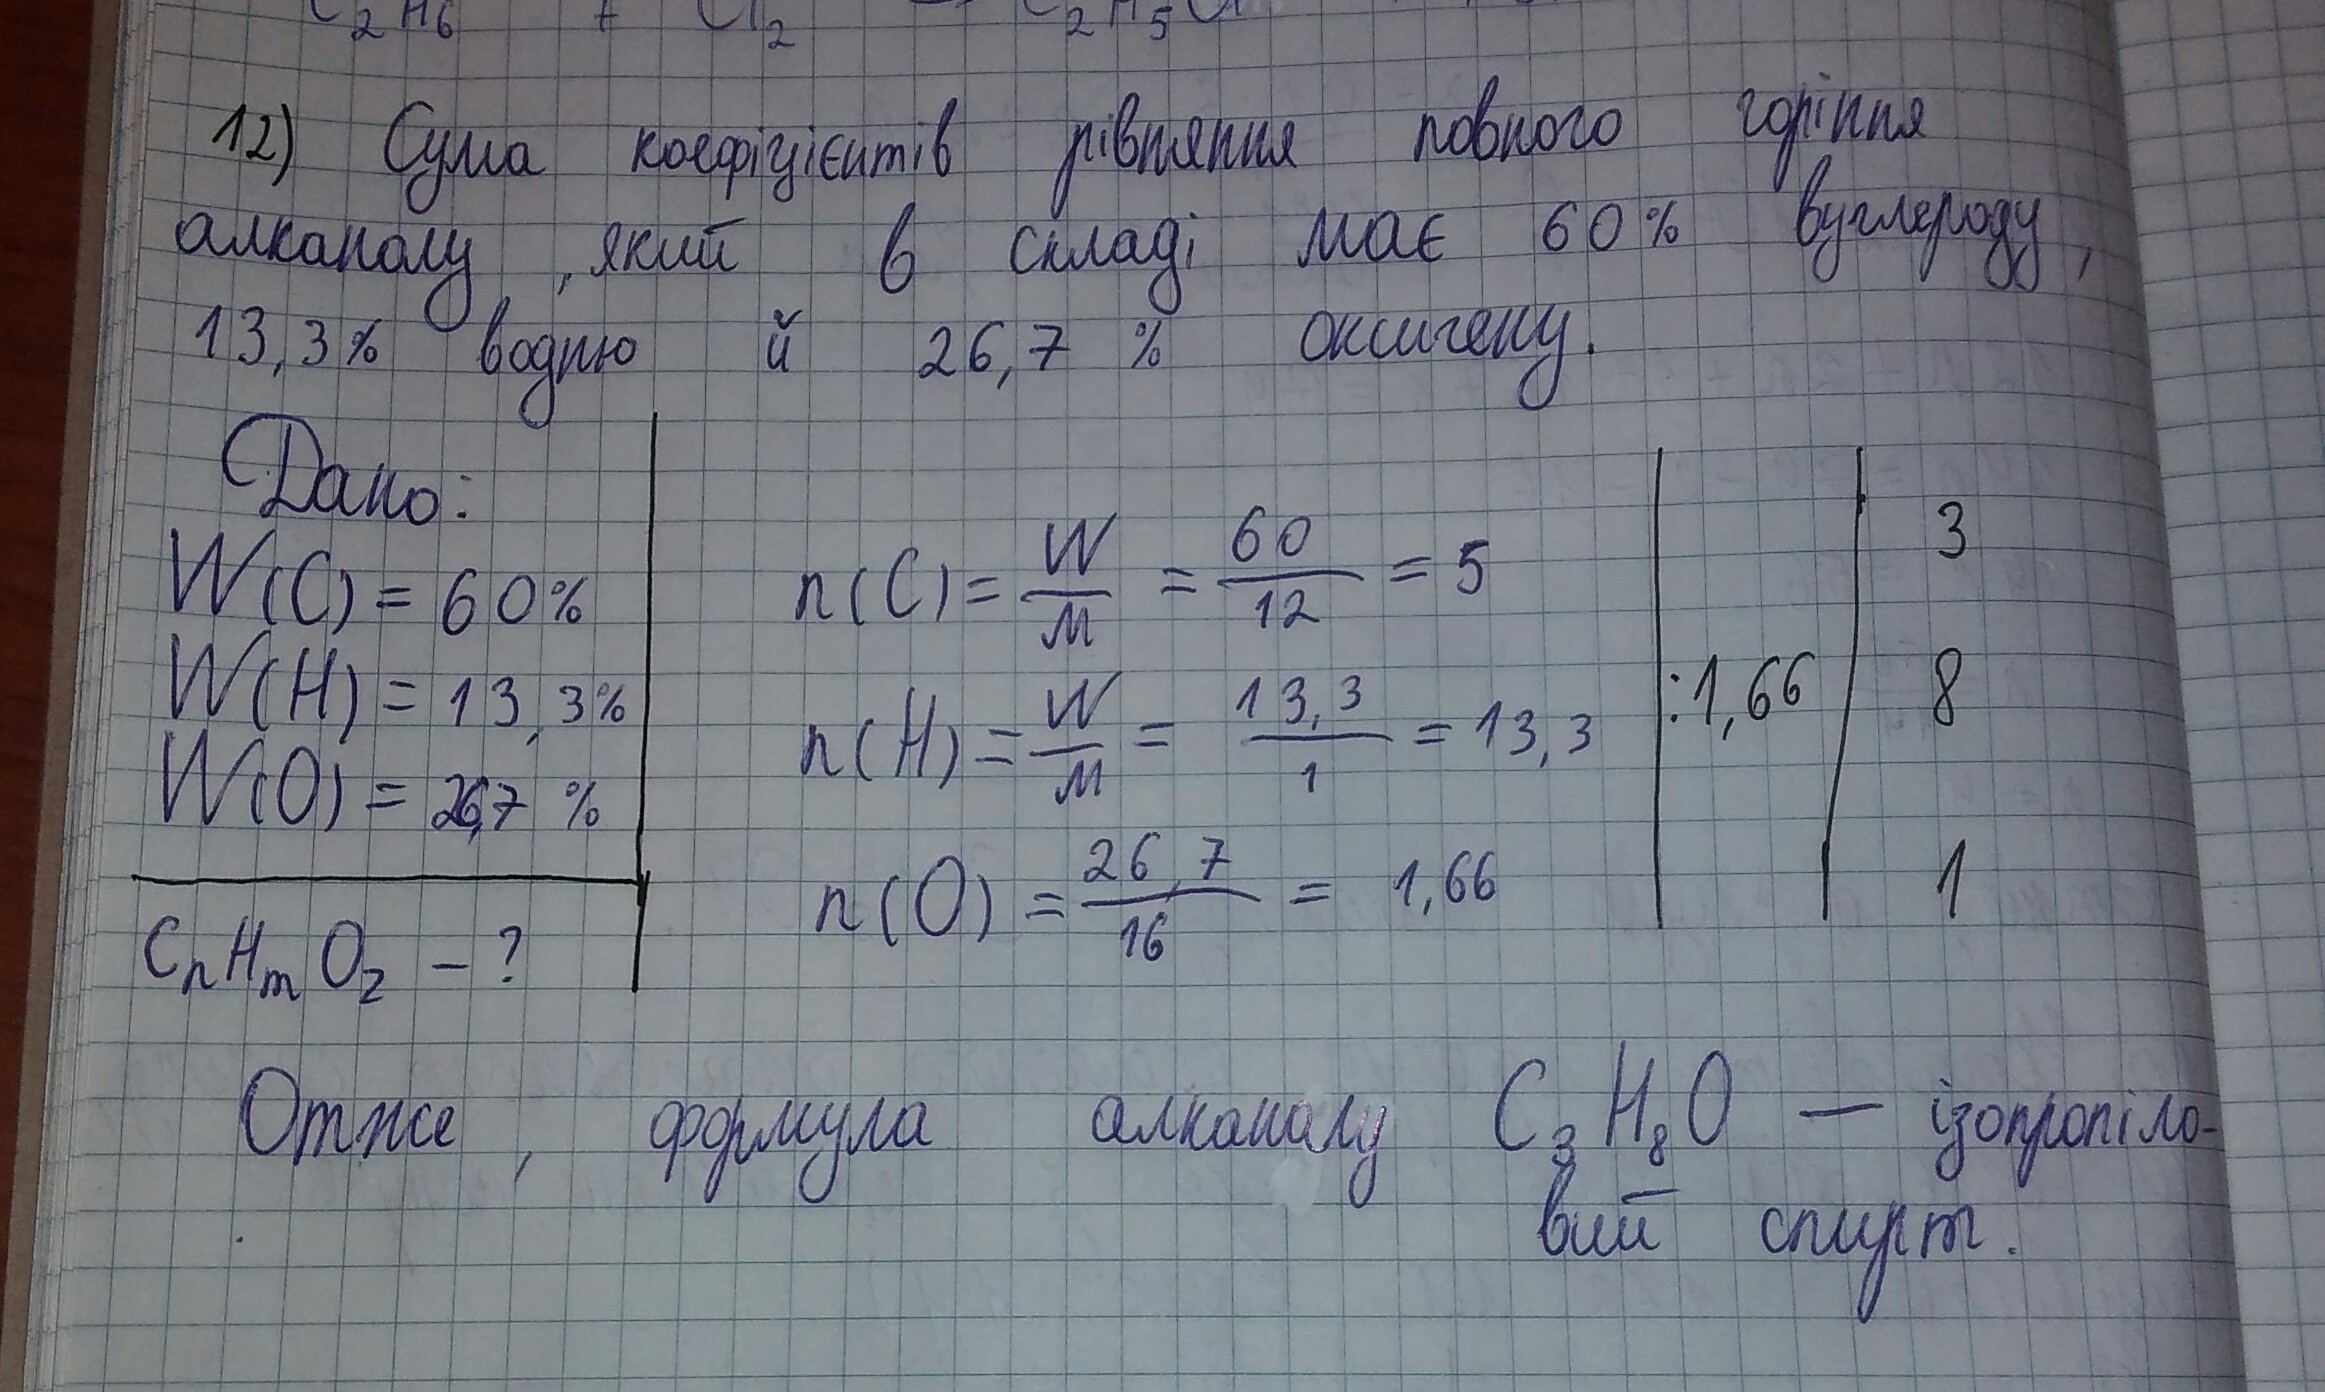 C₂H₆ + Cl₂ → C₂H₅Cl
12) Сума коефіцієнтів рівняння повного горіння
алканолу, який в складі має 60% вуглероду,
13,3% водню й 26,7 % оксигену.
Дано:
W(C) = 60%
W(H) = 13,3%
W(O) = 26,7 %
CₙHₘO₂ – ?
n(C) = W/M = 60/12 = 5
n(H) = W/M = 13,3/1 = 13,3
n(O) = 26,7/16 = 1,66
:1,66
3
8
1
Отже, формула алканалу C₃H₈O — ізопропіло-
вий спирт.